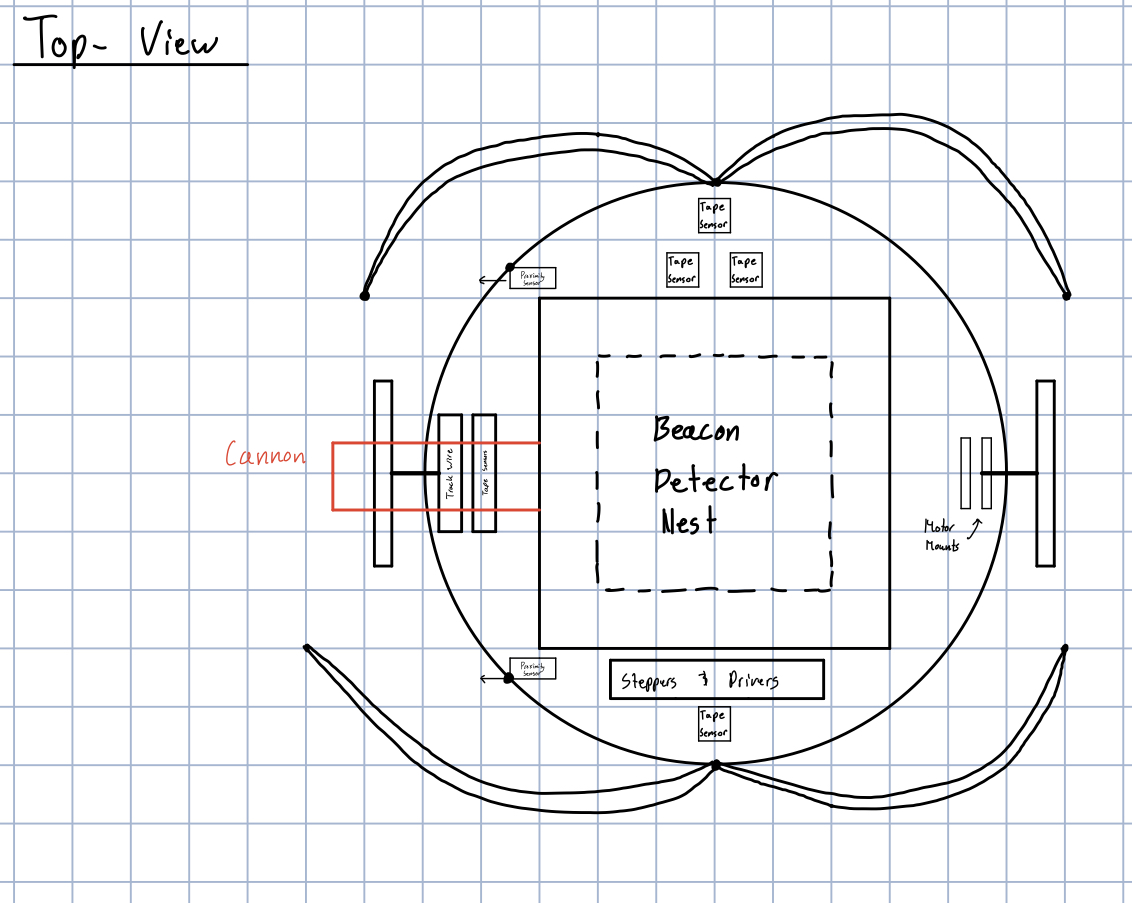 Top- View
Tape
Sensor
Tape
Sensor
Tape
Sensor
Proximity
Sensor
Cannon
Track wire
Tape Sensors
Beacon
Detector
Nest
Motor
Mounts
Proximity
Sensor
Steppers & Drivers
Tape
Sensor